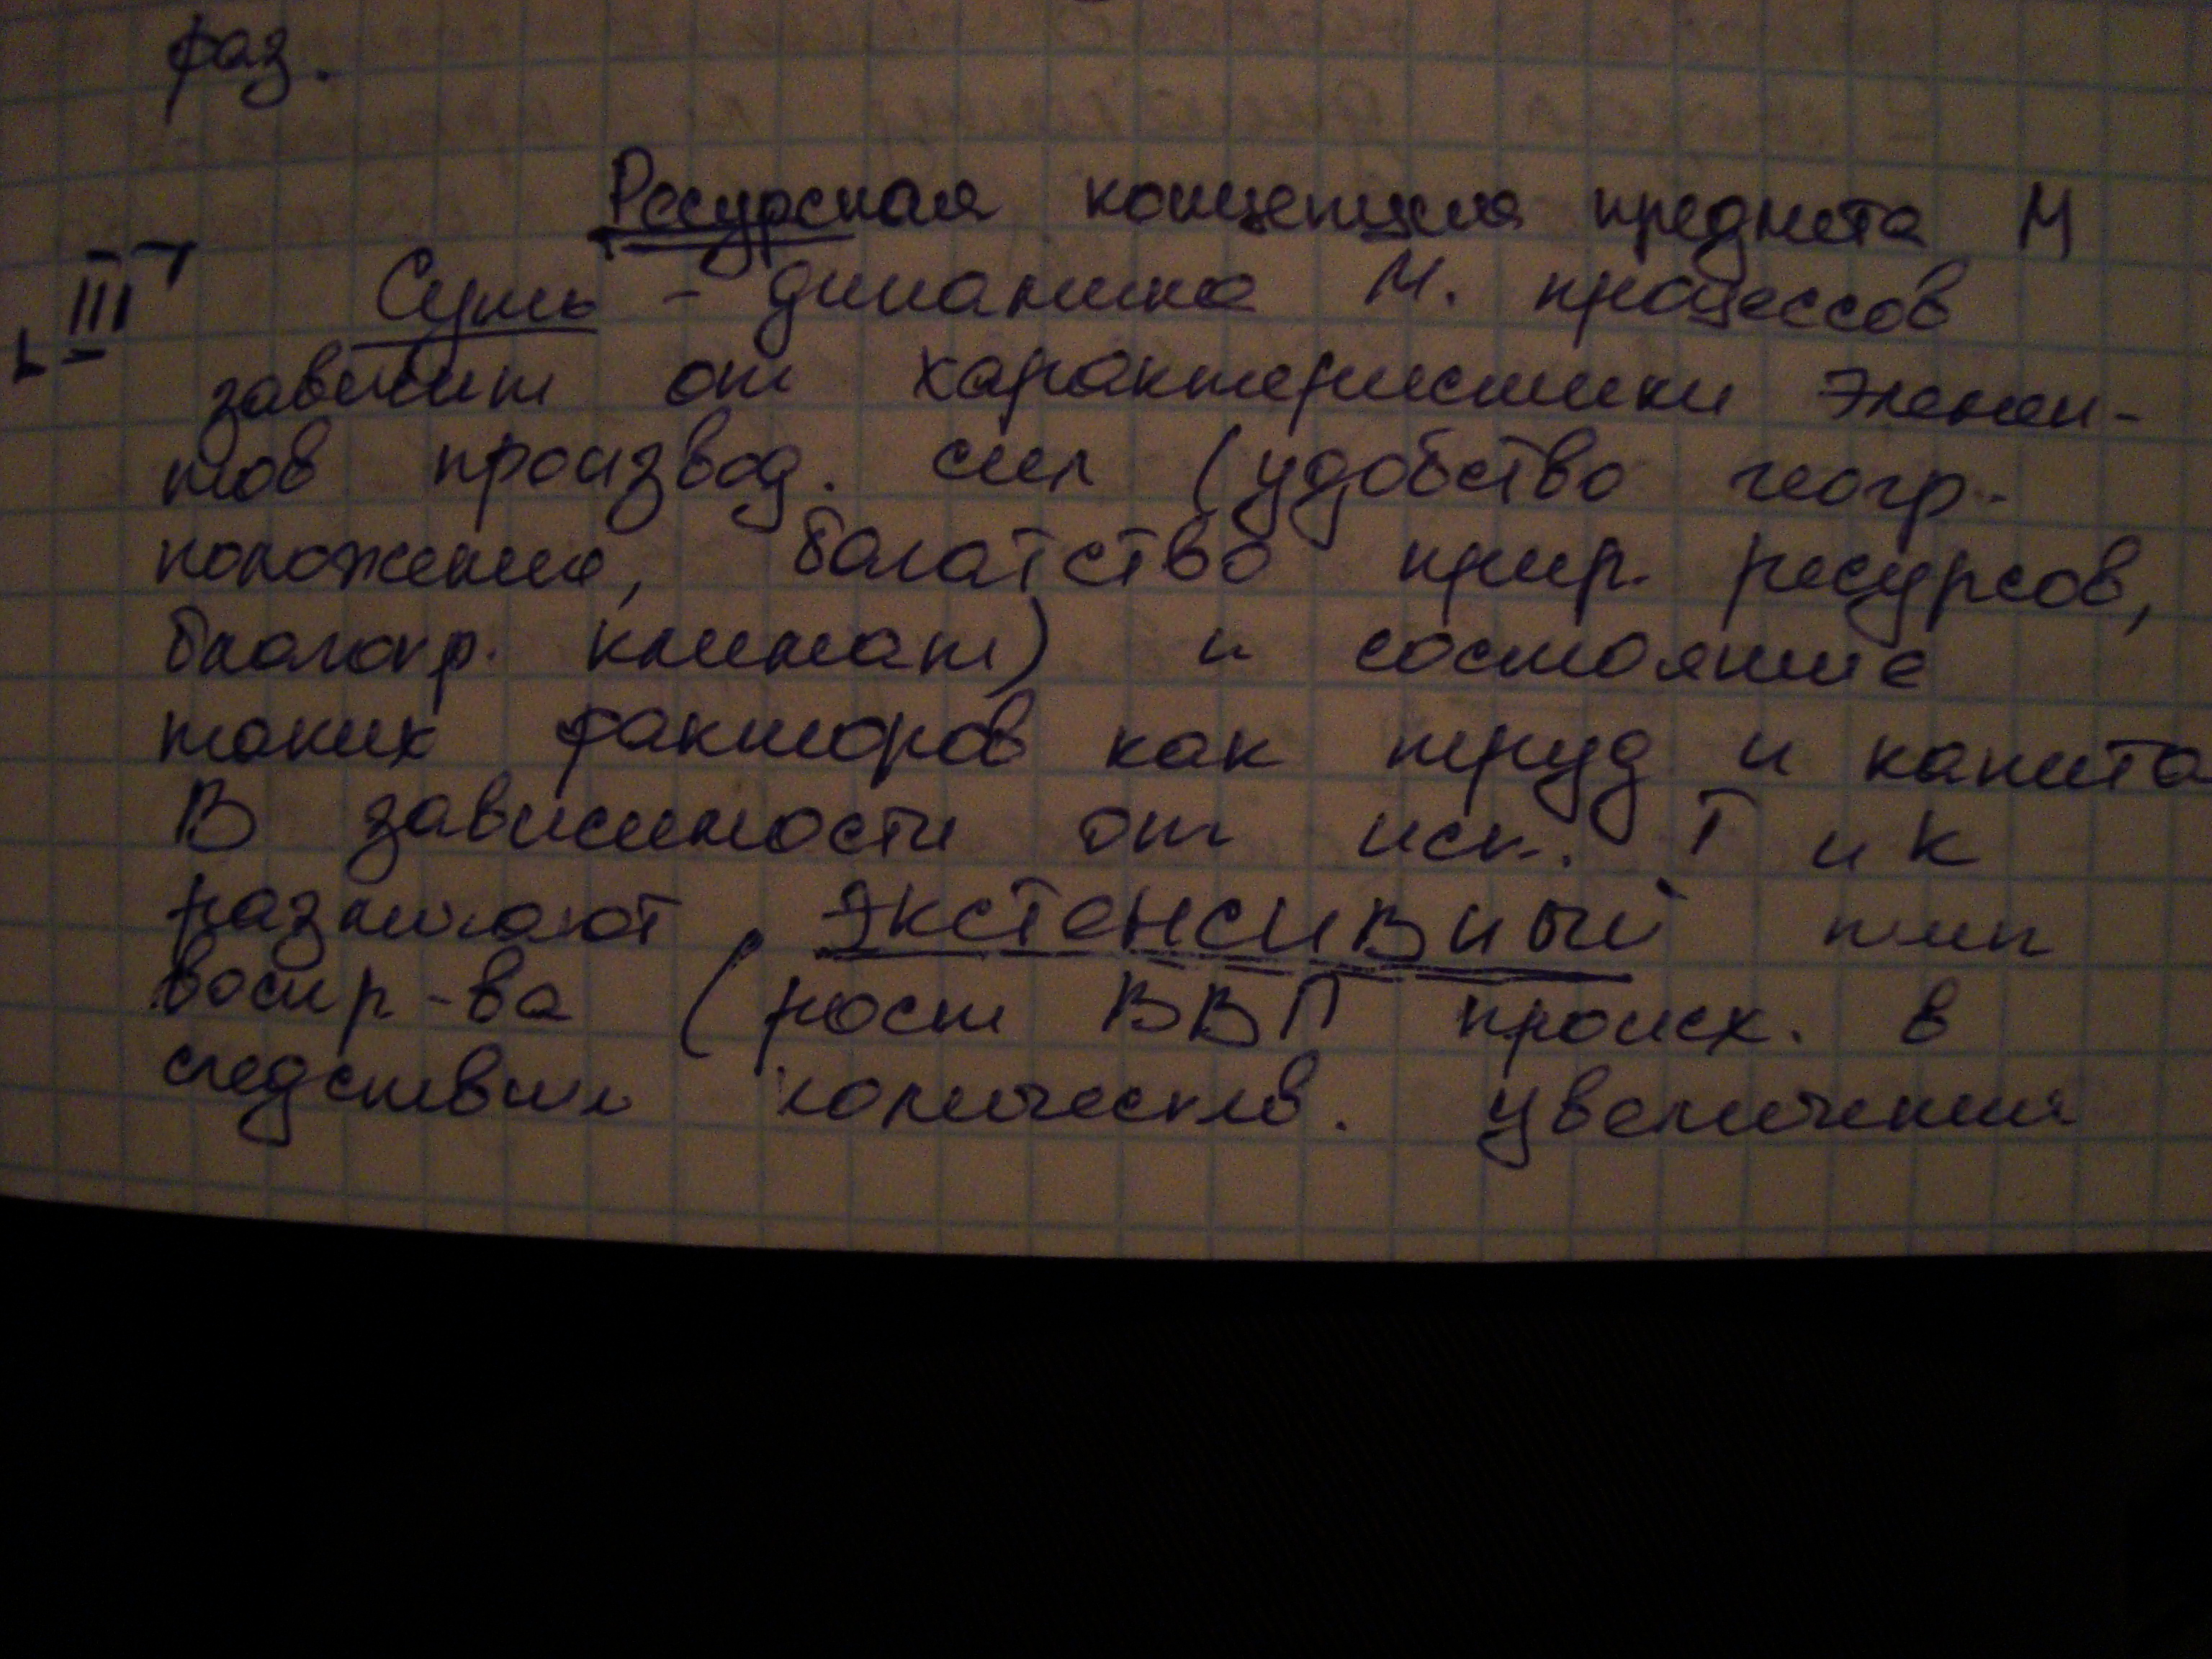 фаз.
Ресурсная концепция предмета М
III Суть - динамика М. процессов
зависит от характеристики элемен-
тов производ. сил (удобство геогр.
положения, богатство прир. ресурсов,
благопр. климат) и состояние
таких факторов как труд и капита
В зависимости от исп. Т и К
различают экстенсивный тип
воспр-ва (рост ВВП происх. в
следствии количеств. увеличения